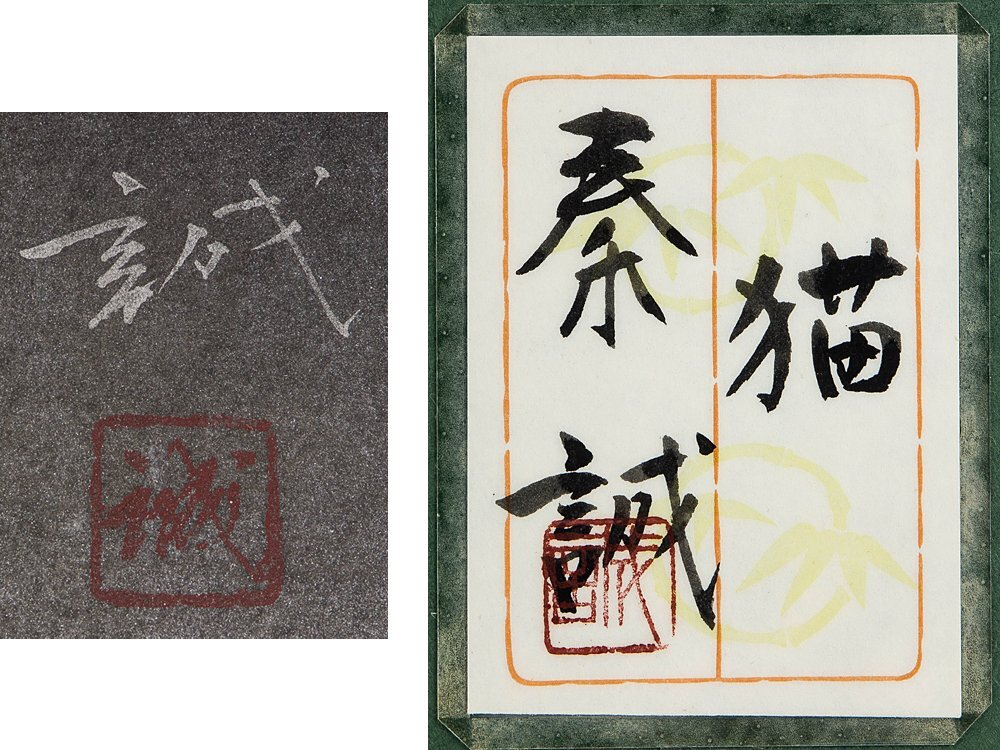 誠
誠
猫
秦誠
誠